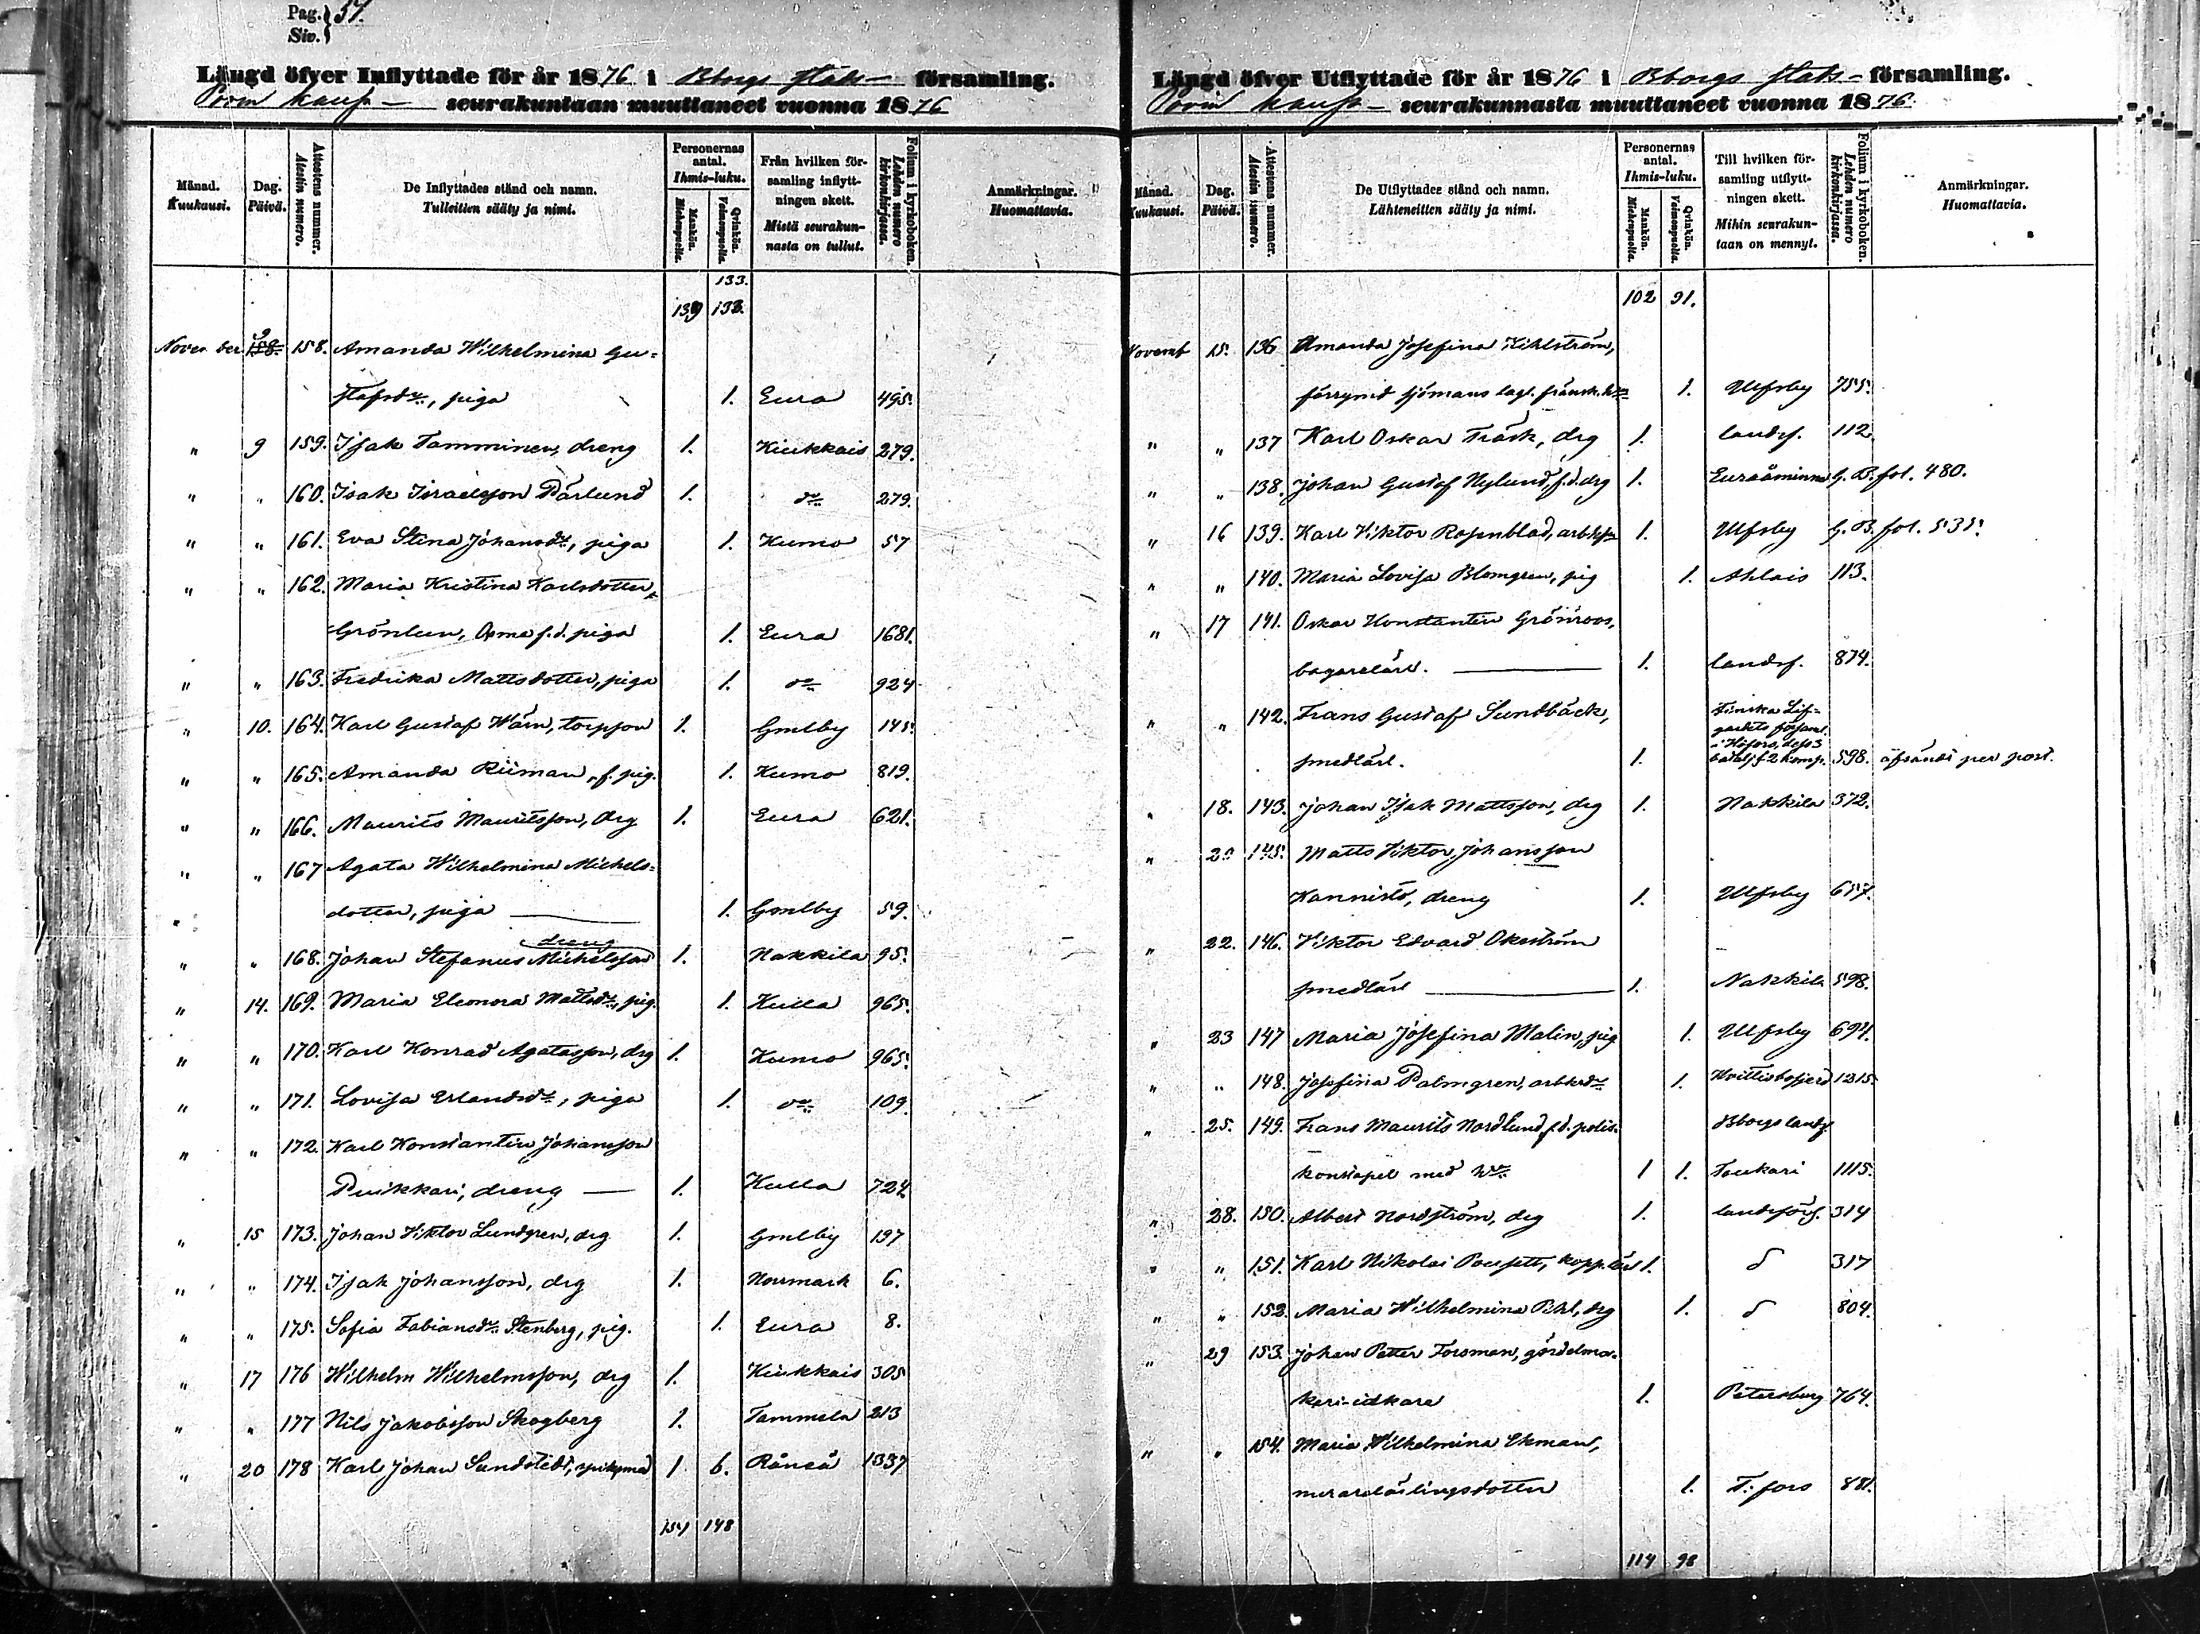 Pag. } 57.
Siv. }
Längd öfver Inflyttade för år 1876 i Bborgs stads- församling.
Porin kaup- seurakuntaan muuttaneet vuonna 1876
Månad. Kuukausi. Dag. Päivä. Attestens nummer. Atestin numero. De Inflyttades stånd och namn. Tulleitten sääty ja nimi. Personernas antal. Ihmis-luku. Mankön. Miehenpuolia. Qvinkön. Vaimonpuolia. Från hvilken församling inflyttningen skett. Mistä seurakunnasta on tullut. Folium i kyrkoboken. Lehden numero kirkonkirjassa. Anmärkningar. Huomattavia.
133.
139 133.
November 9 158. 158. Amanda Wilhelmina Gu-
stafsdr, piga 1. Eura 495.
" 9 159. Isak Tamminen, dreng 1. Kiukkais 279.
" " 160. Isak Israelsson Pärlund 1. do 279.
" " 161. Eva Stina Johansdr, piga 1. Kumo 57
" " 162. Maria Kristina Karlsdotter
Grönlun, f.d. piga 1. Eura 1681.
" " 163. Fredrika Mattsdotter, piga 1. do 924
" 10. 164. Karl Gustaf Wärn, torpson 1. Gmlby 145.
" " 165. Amanda Riiman, f. pig. 1. Kumo 819.
" " 166. Maurits Mauritsson, drg 1. Eura 621.
" " 167 Agata Wilhelmina Michels-
dotter, piga 1. Gmlby 59.
dreng
" " 168. Johan Stefanus Michelsson 1. Nakkila 95.
" 14. 169. Maria Eleonora Mattsdr, pig. 1. Kulla 965.
" " 170. Karl Konrad Agatasson, drg 1. Kumo 965.
" " 171. Lovisa Erlandsdr, piga 1. do 109.
" " 172. Karl Konstantin Johansson
Puikkari, dreng 1. Kulla 724
" 15 173. Johan Viktor Lundgren, drg 1. Gmlby 197
" " 174. Isak Johansson, drg 1. Norrmark 6.
" " 175. Sofia Fabiansdr Stenberg, pig. 1. Eura 8.
" 17 176 Wilhelm Wilhelmsson, drg 1. Kiukkais 305
" " 177 Nils Jakobsson Skogberg 1. Tammela 213
" 20 178 Karl Johan Sundstedt, 1 6. Råneå 1337
154 148
Längd öfver Utflyttade för år 1876 i Bborgs stads- församling.
Porin kaup- seurakunnasta muuttaneet vuonna 1876.
Månad. Kuukausi. Dag. Päivä. Attestens nummer. Atestin numero. De Utflyttades stånd och namn. Lähteneitten sääty ja nimi. Personernas antal. Ihmis-luku. Mankön. Miehenpuolia. Qvinkön. Vaimonpuolia. Till hvilken församling utflyttningen skett. Mihin seurakuntaan on mennyt. Folium i kyrkoboken. Lehden numero kirkonkirjassa. Anmärkningar. Huomattavia.
102 91.
Novemb 15. 136 Amanda Josefina Kihlström,
förrymd sjömans lagl. frånsk. 1. Ulfsby 755.
" " 137 Karl Oskar Träsk, drg 1. landsf. 112
" " 138. Johan Gustaf Nylund, f.d. drg 1. Euraåminne G. B. fol. 480.
" 16 139. Karl Viktor Rosenblad, arbkn 1. Ulfsby G. B. fol. 535.
" " 140. Maria Lovisa Blomgren, pig 1. Ahlais 113.
" 17 141. Oskar Konstantin Grönroos,
bagarelärl. 1. landsf. 874.
" " 142. Frans Gustaf Sundbäck, Finska Lif-
gardets församl.
i Hfors, dess 3
smedlärl. 1. batalj. 2 komp. 598. afsändt per post.
" 18. 143. Johan Isak Mattsson, drg 1. Nakkila 372.
" 20 145. Matts Viktor Johansson
Kannisto, dreng 1. Ulfsby 657.
" 22. 146. Viktor Edvard Okeström
smedlärl 1. Nakkila 598.
" 23 147 Maria Josefina Malin, pig 1. Ulfsby 694.
" " 148. Josefina Palmgren, arbkdr 1. Hvittisbofjerd 1215.
" 25. 149. Frans Maurits Nordlund, f.d. polis- Bborgs landsf.
konstapel med hu 1 1. Toukari 1115.
" 28. 150. Albert Nordström, drg 1. landsförs. 314
" " 151. Karl Nikolai Poussett, kopp.lärl 1. d 317
" " 152. Maria Wilhelmina Pihl, drg 1. d 804.
" 29 153. Johan Petter Forsman, gördelma-
keri-idkare 1. Petersburg 764.
" " 154. Maria Wilhelmina Ekman,
murarelärlingsdotter 1. T:fors 881.
114 98